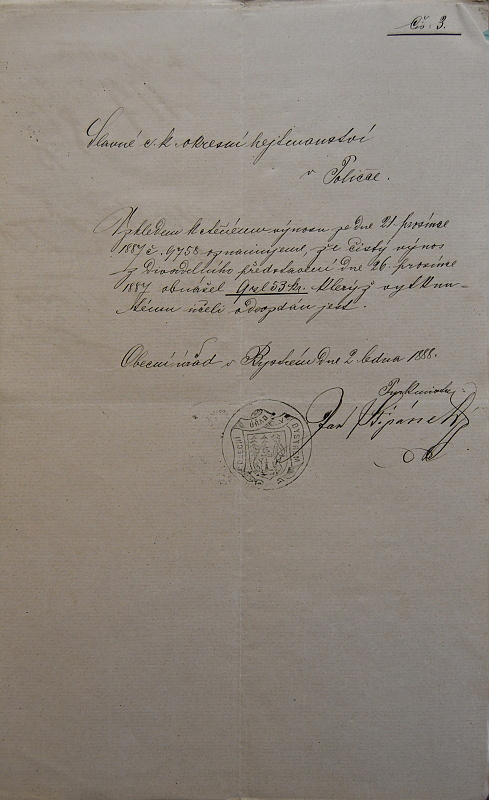 Čís. 3.
Slavné c. k. okresní hejtmanství
v Poličce.
Vzhledem k ctěnému výnosu ze dne 21. prosince
1887 č. 9758 oznamujeme, že čistý výnos
z divadelního představení dne 26. prosince
1887 obnášel 9 zl 53 kr. kterýž vytknu-
tému účeli odevzdán jest.
Obecní úřad v Bystrém dne 2. ledna 1888.
Jan
OBECNÍ ÚŘAD V BYSTRÉM